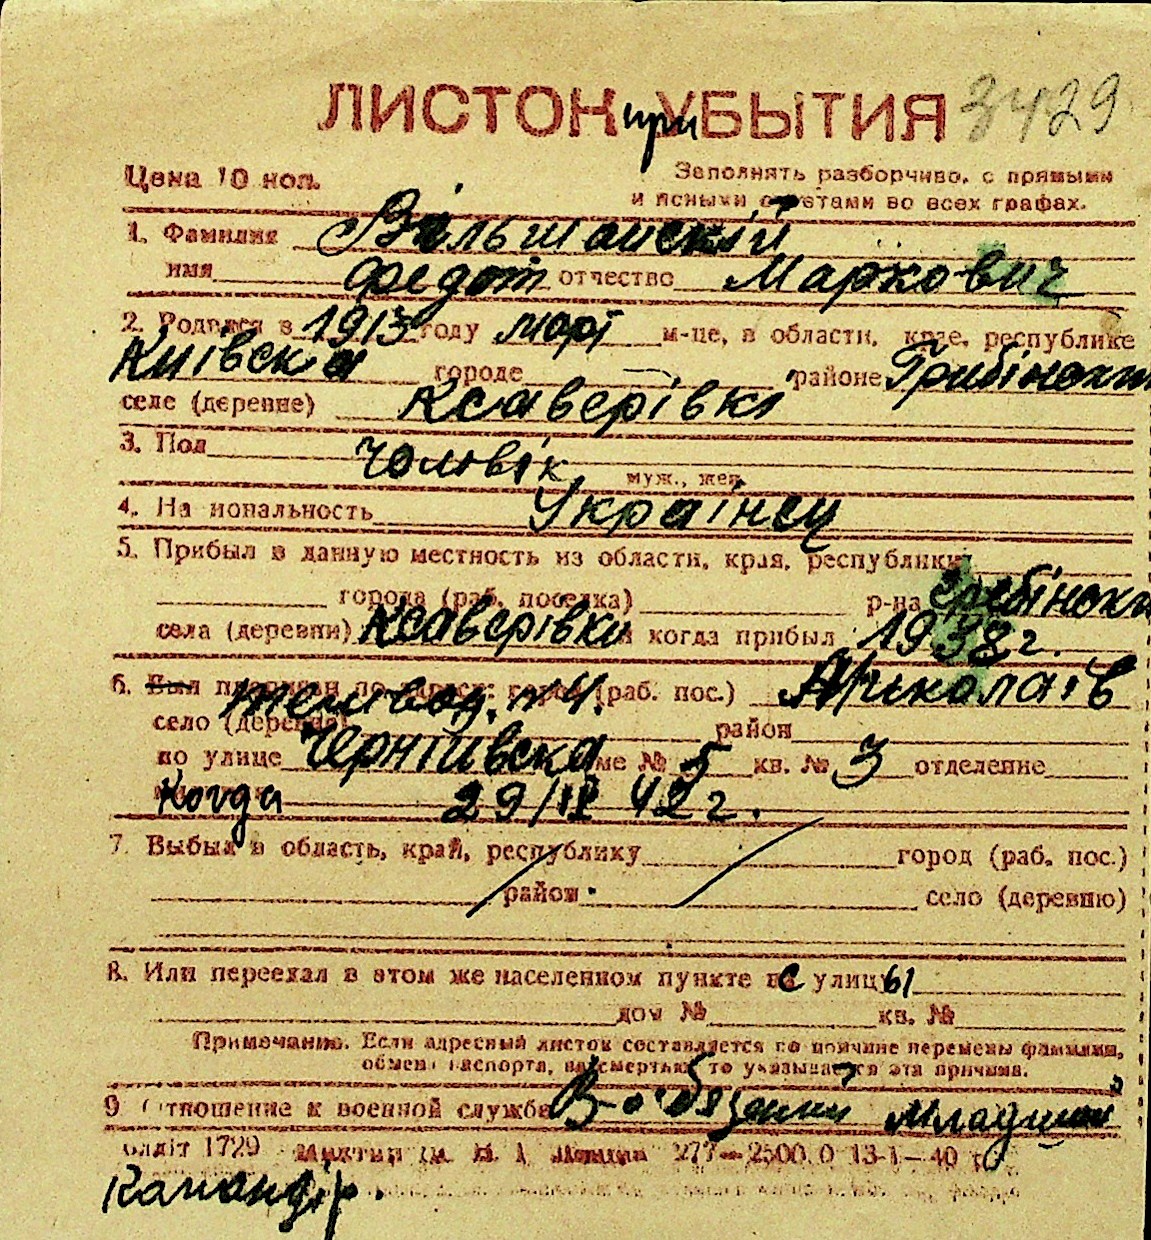 ЛИСТОК при УБЫТИЯ 3429
Цена 10 коп. Заполнять разборчиво, с прямыми
и ясными ответами во всех графах.
1. Фамилия Вільшанскій
имя Федот отчество Маркович
2. Родился в 1913 году март м-це, в области, крае, республике
Київска городе районе Гребінскім
селе (деревне) Ксаверівкі
3. Пол чоловік муж., жен.
4. Национальность Українец
5. Прибыл в данную местность из области, края, республики
города (раб. поселка) р-на Гребінски
села (деревни) Ксаверівки и когда прибыл 1938 г.
6. Был прописан по адресу: город (раб. пос.) Миколаїв
село (деревня) район
по улице Чернігівска доме № 5 кв. № 3 отделение
Когда 29/IX 42 г.
7. Выбыл в область, край, республику город (раб. пос.)
район село (деревню)
8. Или переехал в этом же населенном пункте с улицы
дом № кв. №
Примечание. Если адресный листок составляется по причине перемены фамилии,
обмена паспорта, за смертью, то указывается эта причина.
9. Отношение к военной службе В-обязаний младший
1729 277—2500.0 13-1—40 г.
Командір.